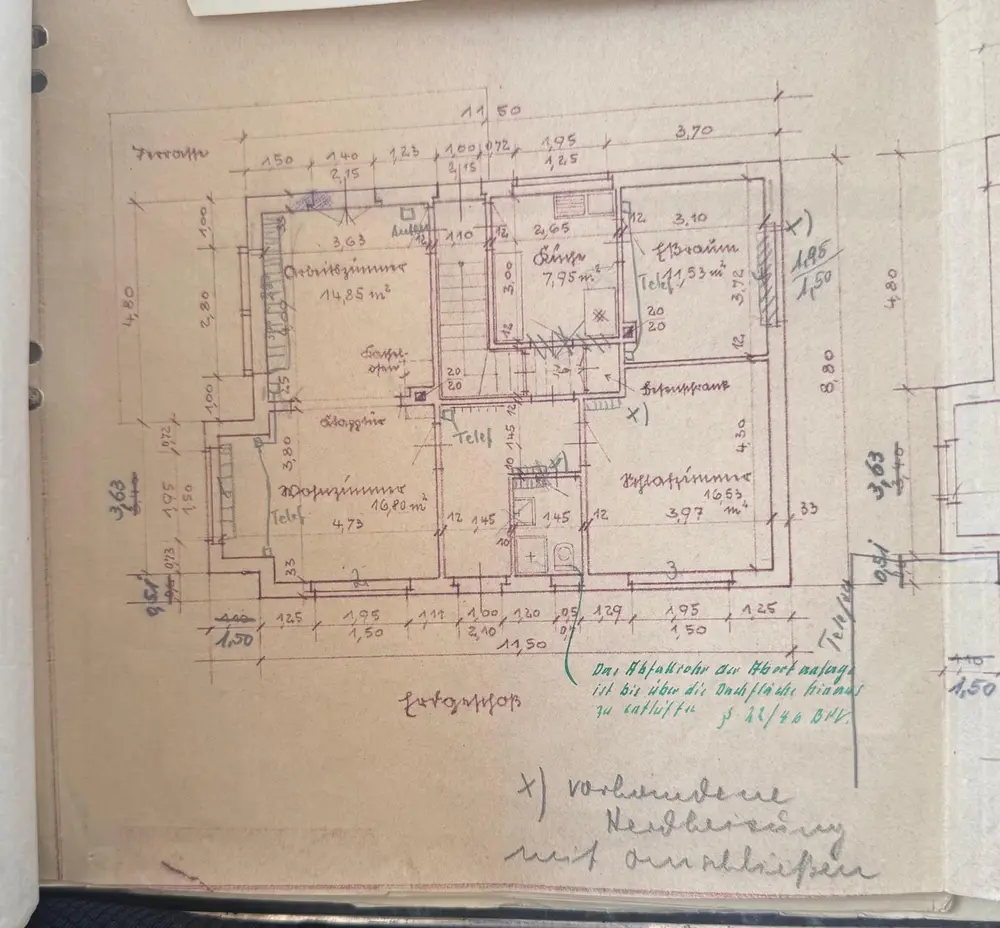 11,50
3,70
Terrasse
1,50 1,40 1,23 1,00 0,72 1,95
2,15 2,15 1,25
1,00
33
3,63
12
1,10
12
2,65
12
3,10
x)
Arbeitszimmer
14,85 m²
Küche
7,95 m²
Eßraum
11,53 m²
Telef.
1,95
1,50
4,80
2,80
4,00
3,00
3,72
4,80
20
20
12
12
8,80
Kachel-
ofen
20
20
Besenschrank
25
1,00
Klapptür
12
x)
Telef
0,72
3,80
1,45
4,30
10
x)
3,63
1,95
1,50
Wohnzimmer
16,80 m²
Schlafzimmer
16,53
m²
3,63
Telef
4,73
12
1,45
1,45
12
3,97
33
10
0,73
33
2
3
0,51
0,51
1,25 1,95 1,11 1,00 1,20 0,5 1,29 1,95 1,25
1,50
1,50 2,10 1,50
11,50
Telefon
1,50
Das Abfallrohr der Abortanlage
ist bis über die Dachfläche hinaus
zu entlüften
§ 22/4b BPV.
Erdgeschoß
x) vorhandene
Herdheizung
mit anschließen